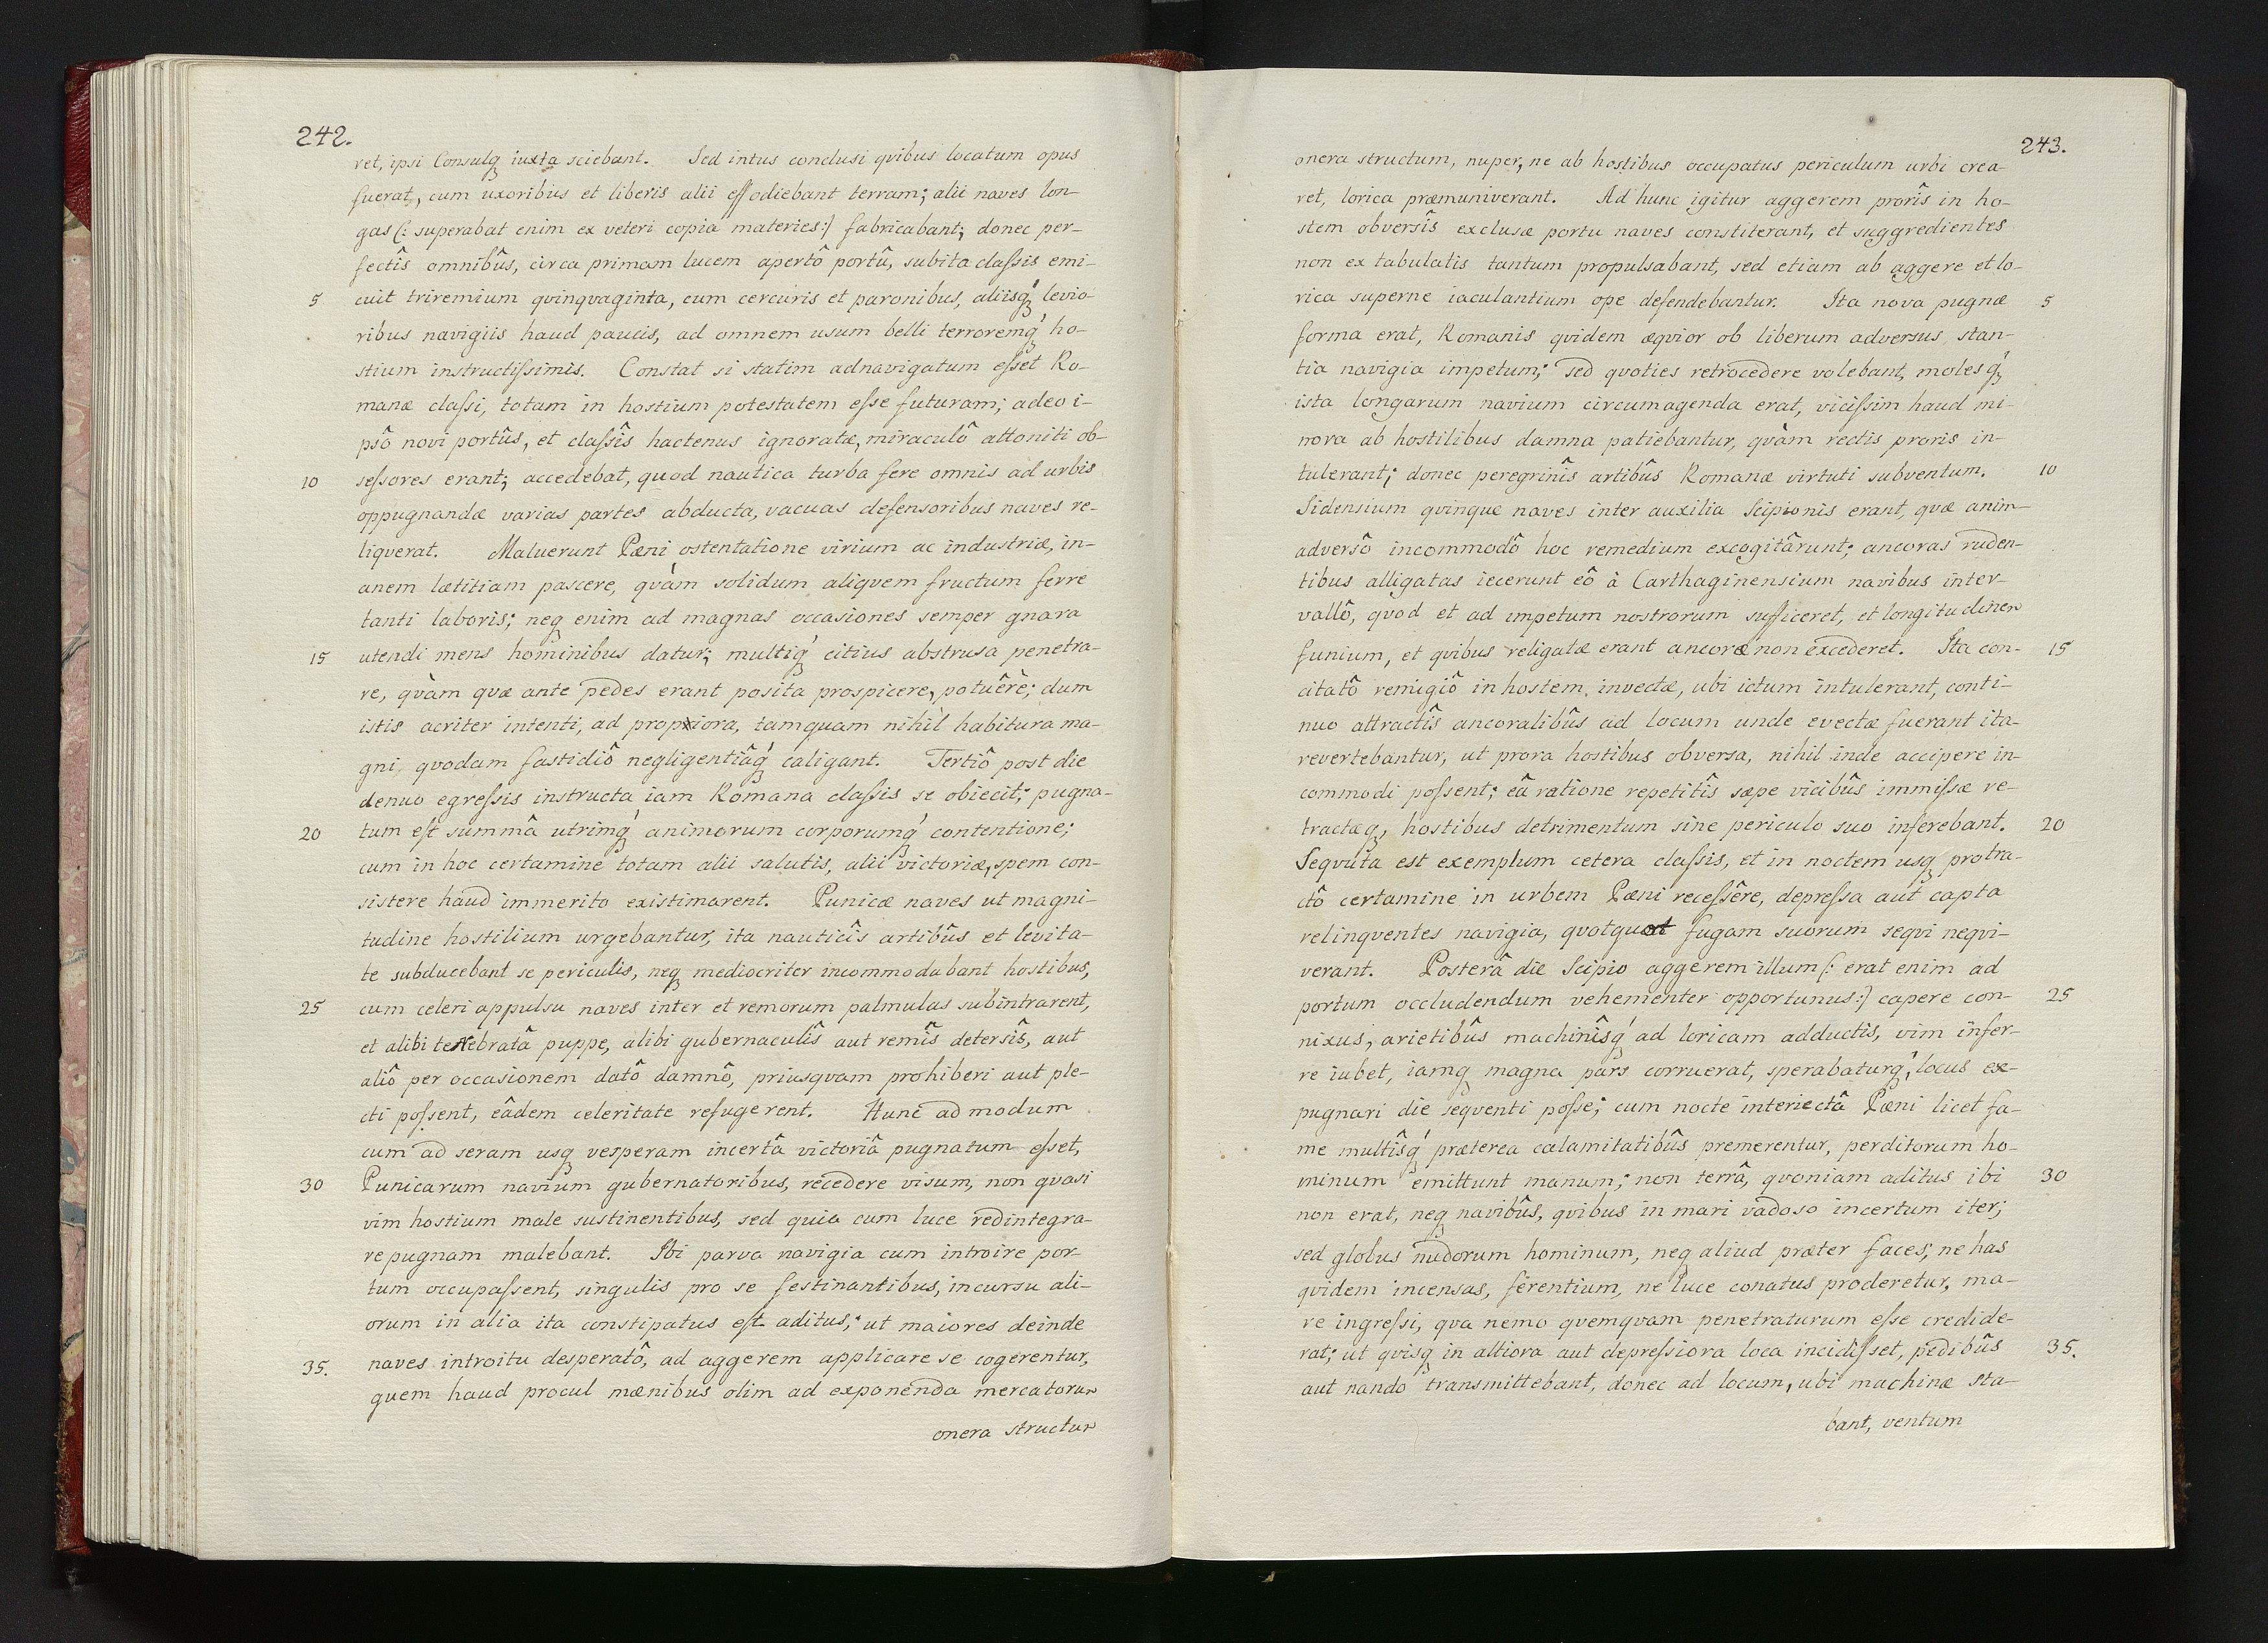 242.
ret, ipsi Consulq́ꝫ iuxta sciebant. Sed intus conclusi qvibus locatum opus
fuerat, cum uxoribus et liberis alii effodiebant terram; alii naves lon-
gas (: superabat enim ex veteri copia materies:) fabricabant; donec per-
fectîs omnibûs, circa primam lucem apertô portû, subita claſsis emi-
5 cuit triremium qvinqvaginta, cum cercuris et paronibus, aliisq́ꝫ levio-
ribus navigiis haud paucis, ad omnem usum belli terroremq́ꝫ ho-
stium instructiſsimis. Constat si statim adnavigatum eſset Ro-
manæ claſsi, totam in hostium potestatem eſse futuram; adeo i-
psô novi portûs, et claſsîs hactenus ignoratæ, miraculô attoniti ob-
10 seſsores erant; accedebat, quod nautica turba fere omnis ad urbis
oppugnandæ varias partes abducta, vacuas defensoribus naves re-
liqverat. Maluerunt Pœni ostentatione virium ac industriæ, in-
anem lætitiam pascere, qvàm solidum aliqvem fructum ferre
tanti laboris; neqꝫ enim ad magnas occasiones semper gnara
15 utendi mens hominibus datur; multiq́ꝫ citius abstrusa penetra-
re, qvàm qvæ ante pedes erant posita prospicere, potuêre; dum
istis acriter intenti, ad propiora, tamquam nihil habitura ma-
gni, qvodam fastidiô negligentiâq́ꝫ caligant. Tertiô post die
denuo egreſsis instructa iam Romana claſsis se obiecit; pugna-
20 tum eſt summâ utrimq́ꝫ animorum corporumq́ꝫ contentione;
cum in hoc certamine totam alii salutis, alii victoriæ, spem con-
sistere haud immerito existimarent. Punicæ naves ut magni-
tudine hostilium urgebantur, ita nauticîs artibûs et levita-
te subducebant se periculis, neqꝫ mediocriter incommodabant hostibus,
25 cum celeri appulsu naves inter et remorum palmulas subintrarent,
et alibi terebratâ puppe, alibi gubernaculîs aut remîs detersîs, aut
aliô per occasionem datô damnô, priusqvam prohiberi aut ple-
cti poſsent, eâdem celeritate refugerent. Hunc ad modum
cum ad seram usqꝫ vesperam incertâ victoriâ pugnatum eſset,
30 Punicarum navium gubernatoribus, recedere visum, non qvasi
vim hostium male sustinentibus, sed quia cum luce redintegra-
re pugnam malebant. Ibi parva navigia cum introire por-
tum occupaſsent, singulis pro se festinantibus, incursu ali-
orum in alia ita constipatus eſt aditus; ut maiores deinde
35. naves introitu desperatô, ad aggerem applicare se cogerentur,
quem haud procul mœnibus olim ad exponenda mercatorum
onera structum
243.
onera structum, nuper, ne ab hostibus occupatus periculum urbi crea-
ret, lorica præmuniverant. Ad hunc igitur aggerem prorîs in ho-
stem obversîs exclusæ portu naves constiterant, et suggredientes
non ex tabulatis tantum propulsabant, sed etiam ab aggere et lo-
rica superne iaculantium ope defendebantur. Ita nova pugnæ 5
forma erat, Romanis qvidem æqvior ob liberum adversus stan-
tia navigia impetum; sed qvoties retrocedere volebant, molesq́ꝫ
ista longarum navium circumagenda erat, viciſsim haud mi-
nora ab hostilibus damna patiebantur, qvàm rectis proris in-
tulerant; donec peregrinîs artibûs Romanæ virtuti subventum. 10
Sidensium qvinque naves inter auxilia Scipionis erant, qvæ anim-
adversô incommodô hoc remedium excogitârunt; ancoras ruden-
tibus alligatas iecerunt eô à Carthaginensium navibus inter-
vallô, qvod et ad impetum nostrorum sufficeret, et longitudinem
funium, et qvibus religatæ erant ancoræ non excederet. Ita con- 15
citatô remigiô in hostem invectæ, ubi ictum intulerant, conti-
nuo attractîs ancoralibûs ad locum unde evectæ fuerant ita
revertebantur, ut prora hostibus obversa, nihil inde accipere in-
commodi poſsent; eâ ratione repetitîs sæpe vicibûs immiſsæ re-
tractæqꝫ, hostibus detrimentum sine periculo suo inferebant. 20
Seqvuta est exemplum cetera claſsis, et in noctem usqꝫ protra-
ctô certamine in urbem Pœni receſsêre, depreſsa aut capta
relinqventes navigia, qvotquot fugam suorum seqvi neqvi-
verant. Posterâ die Scipio aggerem illum (: erat enim ad
portum occludendum vehementer opportunus:) capere con- 25
nixus, arietibûs machinîsq́ꝫ ad loricam adductis, vim infer-
re iubet, iamqꝫ magna pars corruerat, sperabaturq́ꝫ, locus ex-
pugnari die seqventi poſse; cum nocte interiectâ Pœni licet fa-
me multîsq́ꝫ præterea calamitatibûs premerentur, perditorum ho-
minum emittunt manum; non terrâ, qvoniam aditus ibi 30
non erat, neqꝫ navibûs, qvibus in mari vadoso incertum iter;
sed globus nudorum hominum, neqꝫ aliud præter faces, ne has
qvidem incensas, ferentium, ne luce conatus proderetur, ma-
re ingreſsi, qva nemo qvemqvam penetraturum eſse credide-
rat; ut qvisqꝫ in altiora aut depreſsiora loca incidiſset, pedibûs 35.
aut nando transmittebant, donec ad locum, ubi machinæ sta-
bant, ventum